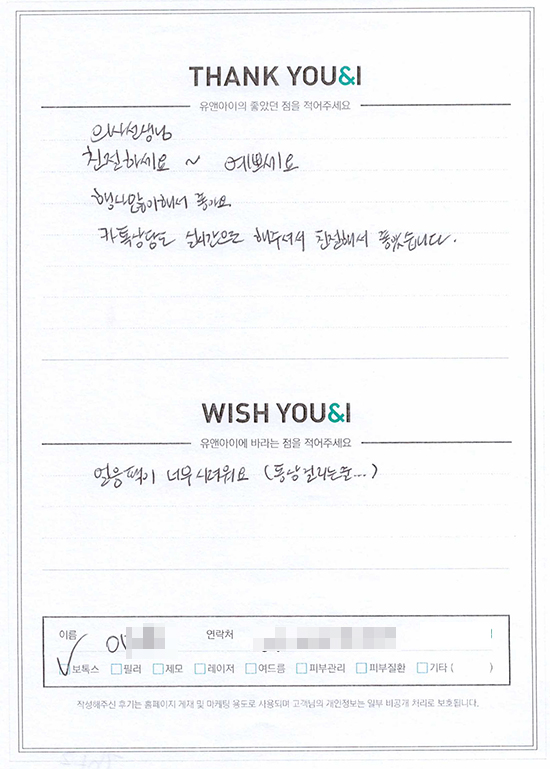 THANK YOU&I
유앤아이의 좋았던 점을 적어주세요
의사선생님
친절하세요 ~ 예쁘세요
행사많이해서 좋아요
카톡상담도 실시간으로 해주셔서 친절해서 좋았습니다.
WISH YOU&I
유앤아이에 바라는 점을 적어주세요
얼음팩이 너무 시려워요 (동상걸리는줄...)
이름 이 연락처
보톡스 필러 제모 레이저 여드름 피부관리 피부질환 기타 ( )
작성해주신 후기는 홈페이지 게재 및 마케팅 용도로 사용되며 고객님의 개인정보는 일부 비공개 처리로 보호됩니다.